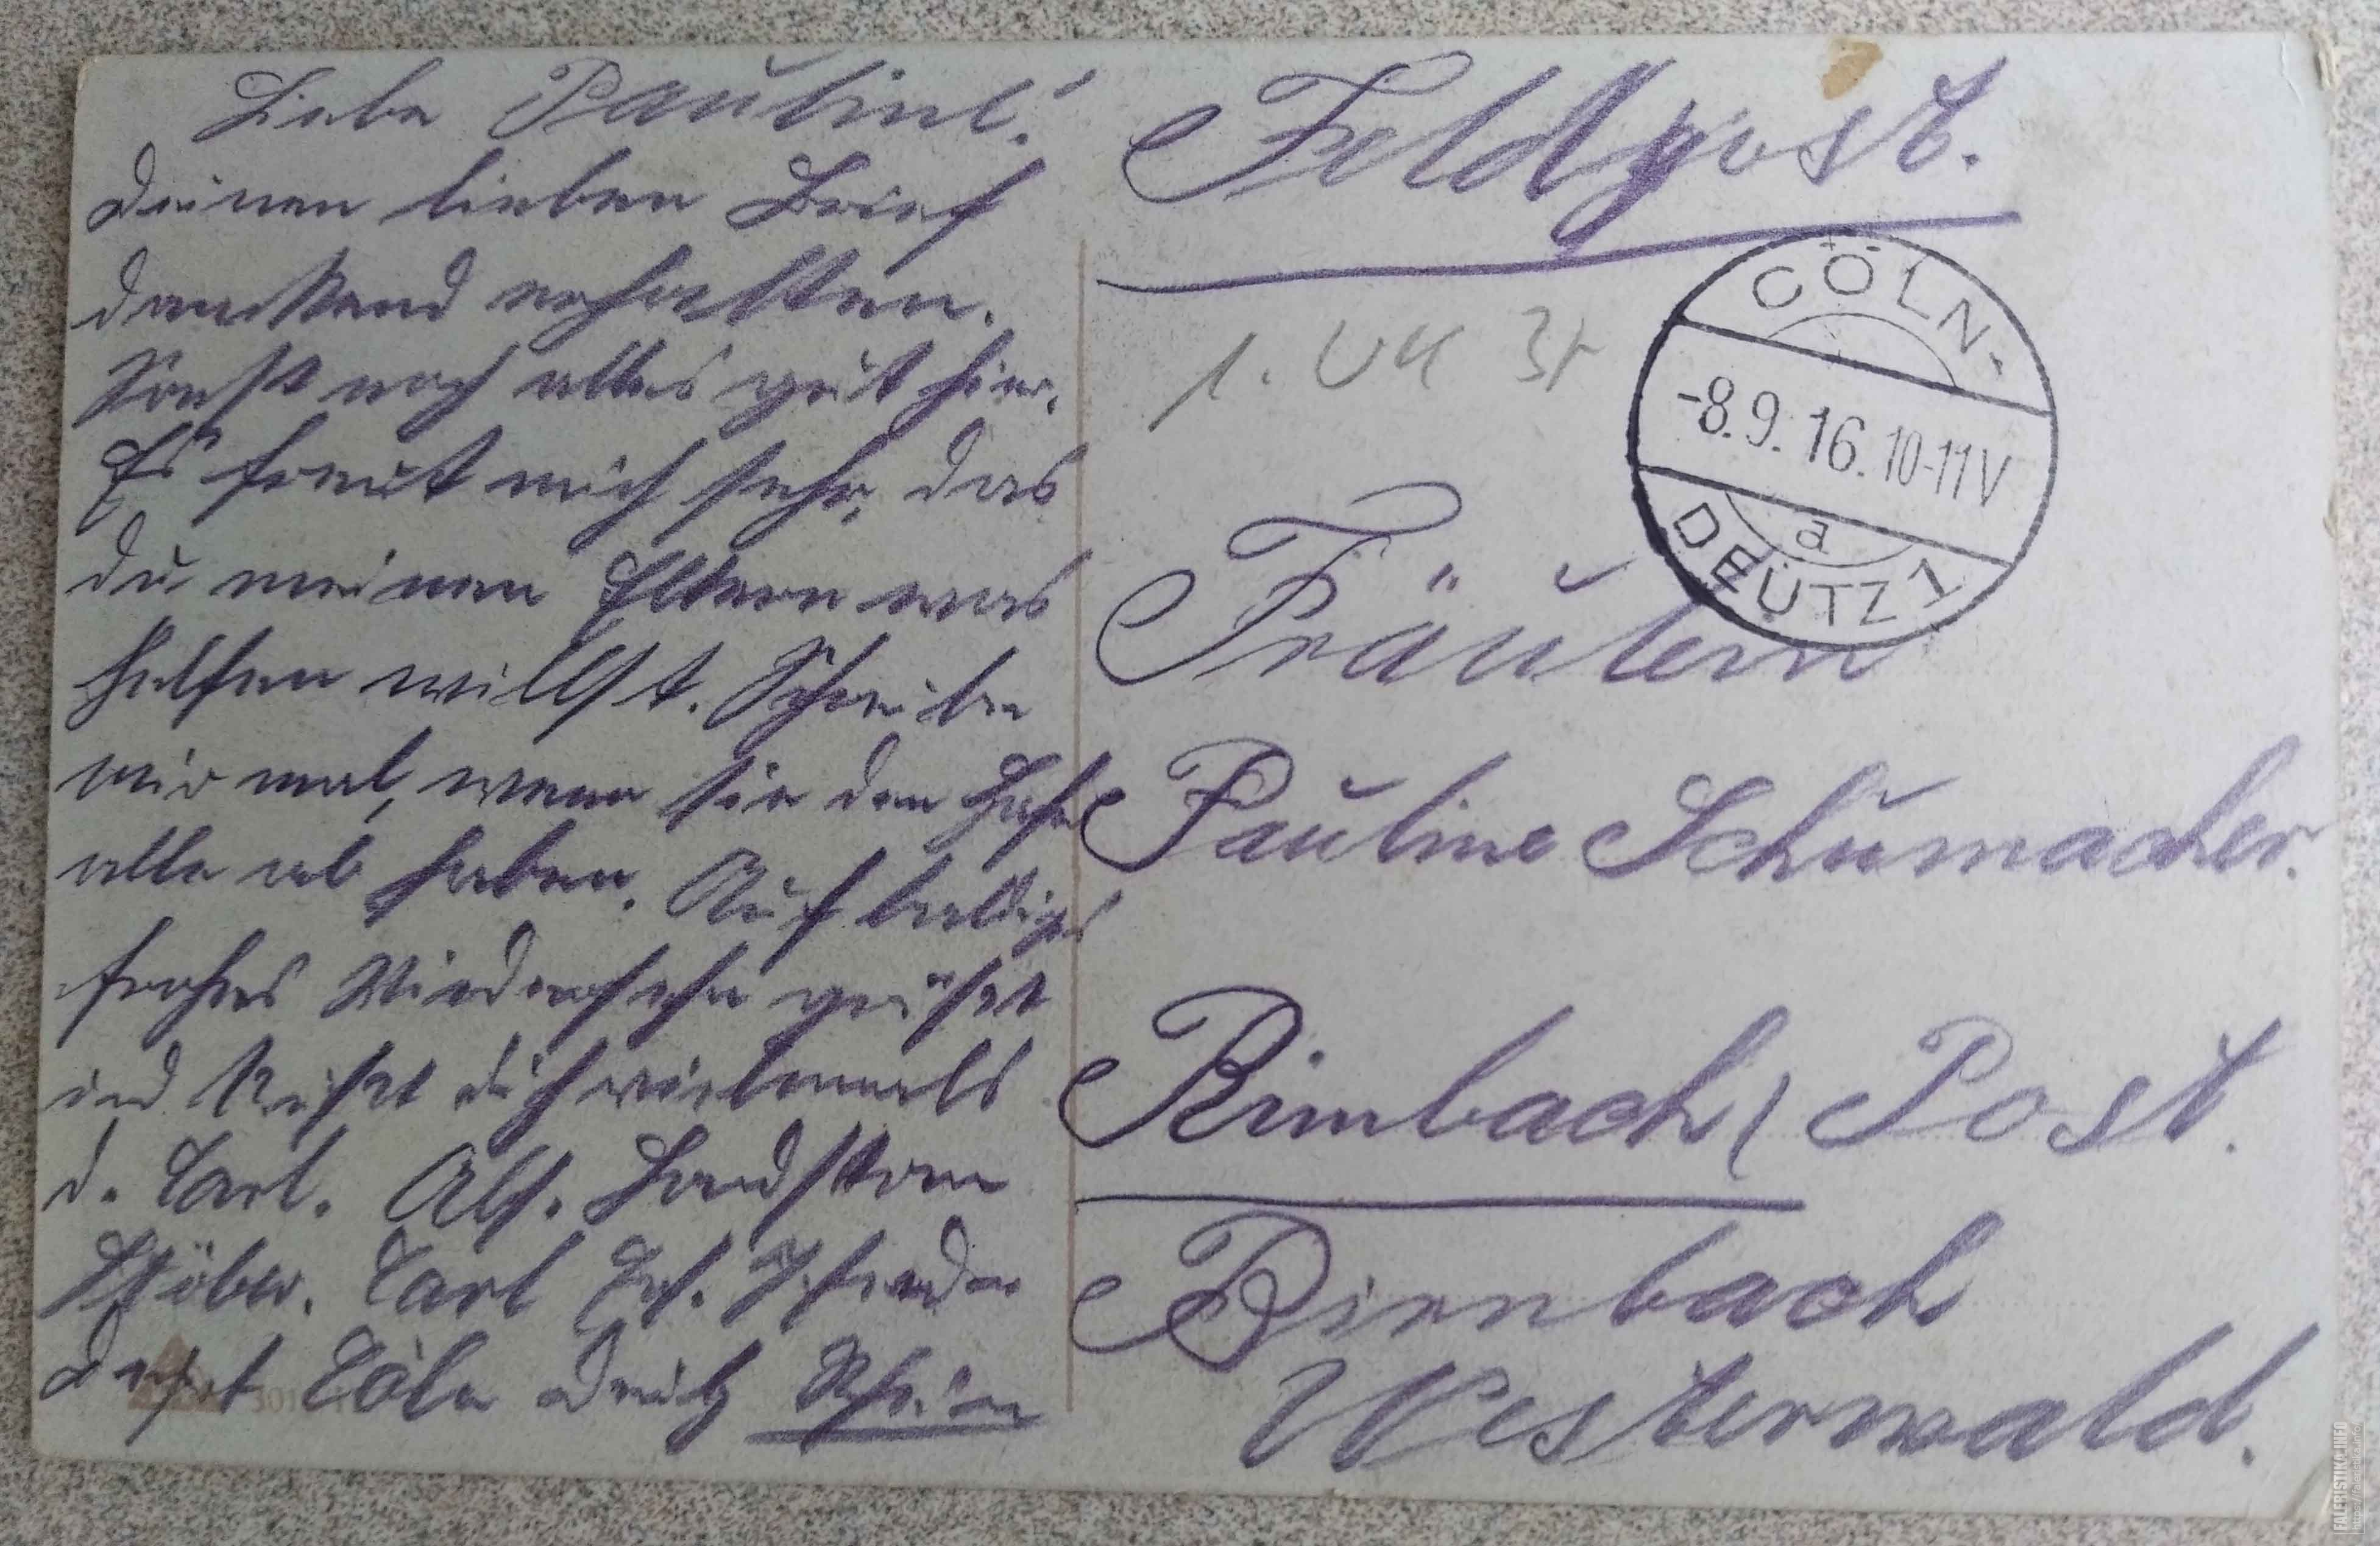 Liebe Pauline!
Deinen lieben Brief
dankend erhalten.
Sonst noch alles gut hier.
Es freut mich sehr, das
du meinen Eltern was
helfen willst. Schreibe
mir mal, wenn sie den Hafer
alle ab haben. Auf baldiges
frohes Wiedersehn grüßt
und Küßt dich vielmals
d. Carl. Abs. Landstrm
Carl Ers. Pferde
Depot Cöln Deutz Rhein
Feldpost.
CÖLN-
-8.9.16.10-11V
a
DEUTZ 1
Fräulein
Pauline Schumacher.
Rimbach, Post.
Birnbach
Westerwald.
FALERISTIKA.INFO